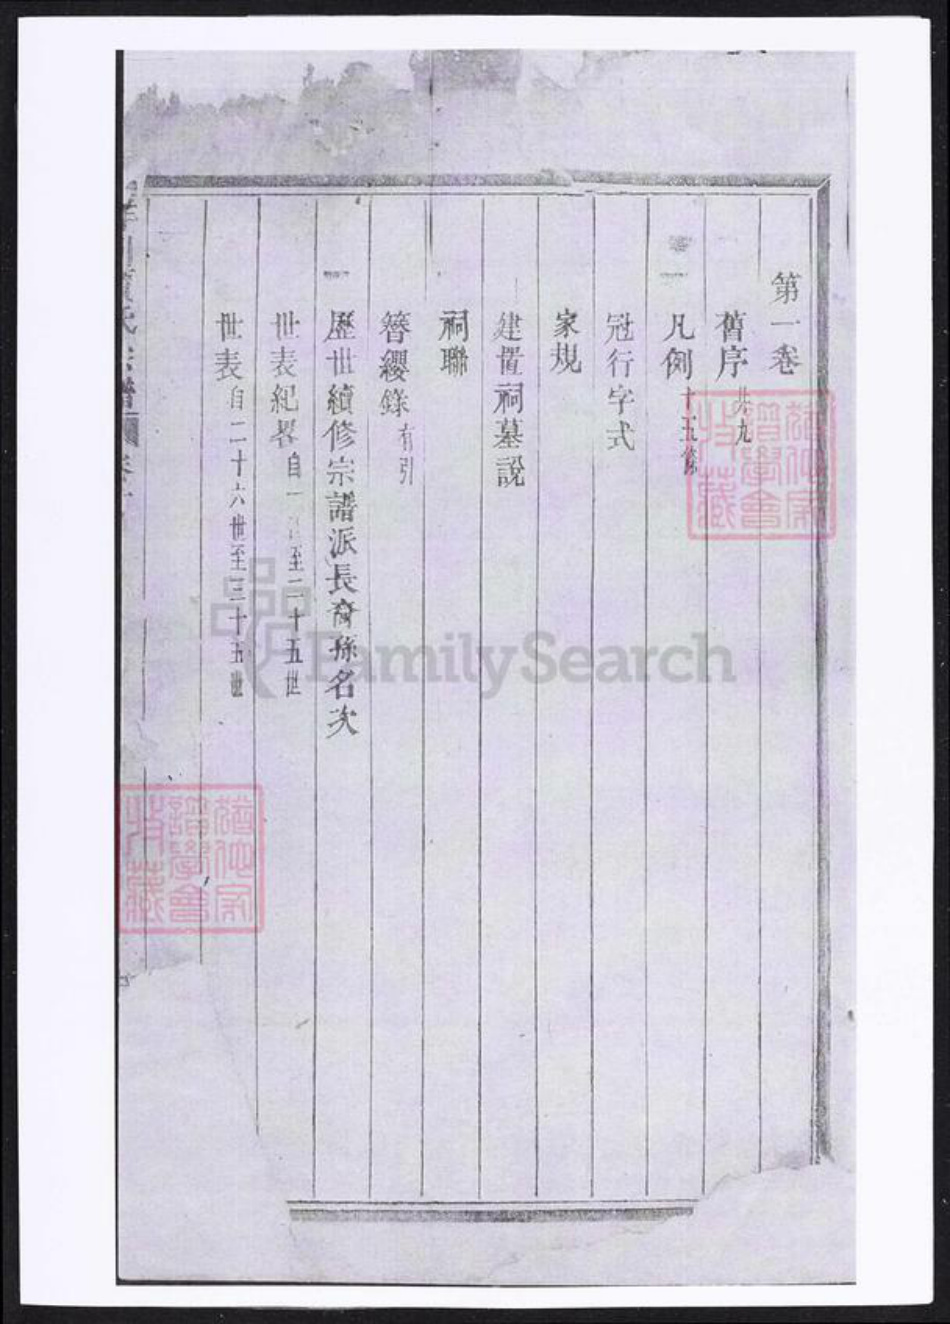 第一卷
舊序共九
凡例十五條
冠行字式
家規
建置祠墓說
祠聯
簪纓錄有引
歷世續修宗譜派長裔孫名次
世表紀畧自一 至二十五世
世表自二十六世至三十五世
氏宗譜
FamilySearch
譜學會
藏
譜學會
藏